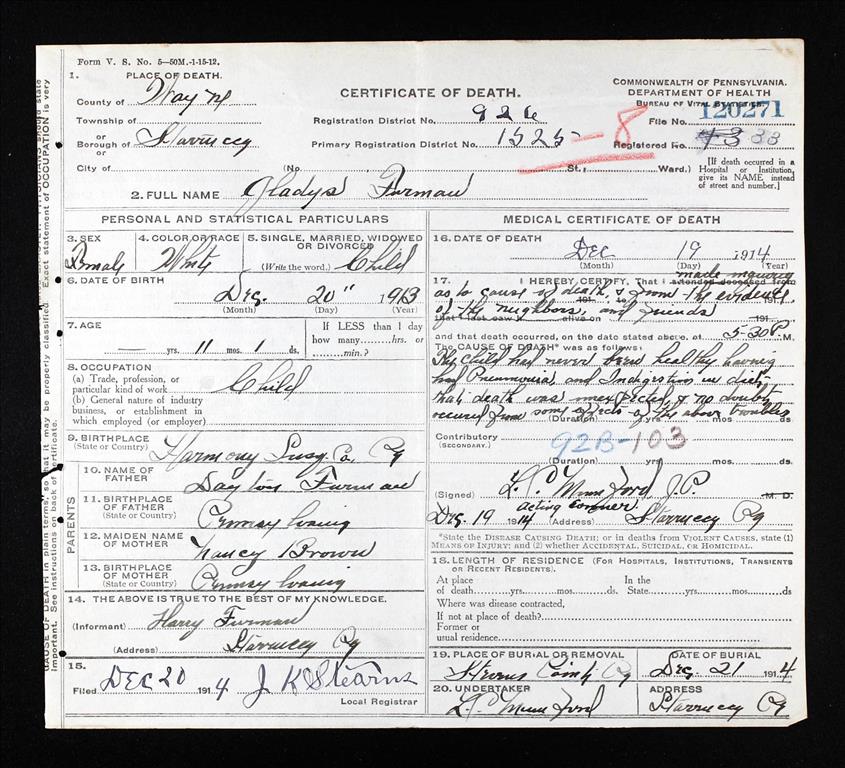 Form V. S. No. 5—50M.-1-15-12.
1. PLACE OF DEATH.
County of Wayne
Township of
or
Borough of Starrucca
City of
CERTIFICATE OF DEATH.
Registration District No. 926
Primary Registration District No. 1525-8
(No. St., Ward.)
COMMONWEALTH OF PENNSYLVANIA.
DEPARTMENT OF HEALTH
BUREAU OF VITAL STATISTICS.
File No. 120271
Registered No. 33
[If death occurred in a
Hospital or Institution,
give its NAME instead
of street and number.]
2. FULL NAME Gladys Furman
PERSONAL AND STATISTICAL PARTICULARS
3. SEX
Female
4. COLOR OR RACE
White
5. SINGLE, MARRIED, WIDOWED
OR DIVORCED
(Write the word.) Child
6. DATE OF BIRTH
Dec. 20" 1913
(Month) (Day) (Year)
7. AGE
— yrs. 11 mos. 1 ds.
If LESS than 1 day
how many....hrs. or
....min.?
8. OCCUPATION
(a) Trade, profession, or
particular kind of work Child
(b) General nature of industry
business, or establishment in
which employed (or employer)
9. BIRTHPLACE
(State or Country) Harmony Susq. Co. Pa
PARENTS
10. NAME OF
FATHER Dayton Furman
11. BIRTHPLACE
OF FATHER
(State or Country) Pennsylvania
12. MAIDEN NAME
OF MOTHER Nancy Brown
13. BIRTHPLACE
OF MOTHER
(State or Country) Pennsylvania
14. THE ABOVE IS TRUE TO THE BEST OF MY KNOWLEDGE.
(Informant) Harry Furman
(Address) Starrucca Pa
15.
Filed DEC 20 1914 J K Stearns
Local Registrar
MEDICAL CERTIFICATE OF DEATH
16. DATE OF DEATH
Dec 19 1914
(Month) (Day) (Year)
17. I HEREBY CERTIFY, That I attended deceased from made inquiry
as to cause of death, & from the evidence
of the neighbors, and friends
that I last saw h alive on 191
and that death occurred, on the date stated above, at 5-30 P. M.
The CAUSE OF DEATH* was as follows:
The child had never been healthy having
had Pneumonia, and Indigestion
that death was unexpected, & no doubt
occured from some effects of the above troubles
(Duration) yrs. mos. ds
Contributory 92B-103
(SECONDARY.)
(Duration) yrs. mos. ds.
(Signed) Mumford J.P. M. D.
acting coroner
Dec. 19 1914 (Address) Starrucca Pa
*State the DISEASE CAUSING DEATH; or in deaths from VIOLENT CAUSES, state (1)
MEANS OF INJURY; and (2) whether ACCIDENTAL, SUICIDAL, OR HOMICIDAL.
18. LENGTH OF RESIDENCE (FOR HOSPITALS, INSTITUTIONS, TRANSIENTS
OR RECENT RESIDENTS).
At place In the
of death....yrs....mos....ds. State....yrs....mos....ds
Where was disease contracted,
if not at place of death?
Former or
usual residence
19. PLACE OF BURIAL OR REMOVAL
Stevens Pa
DATE OF BURIAL
Dec. 21 1914
20. UNDERTAKER
Mumford
ADDRESS
Starrucca Pa